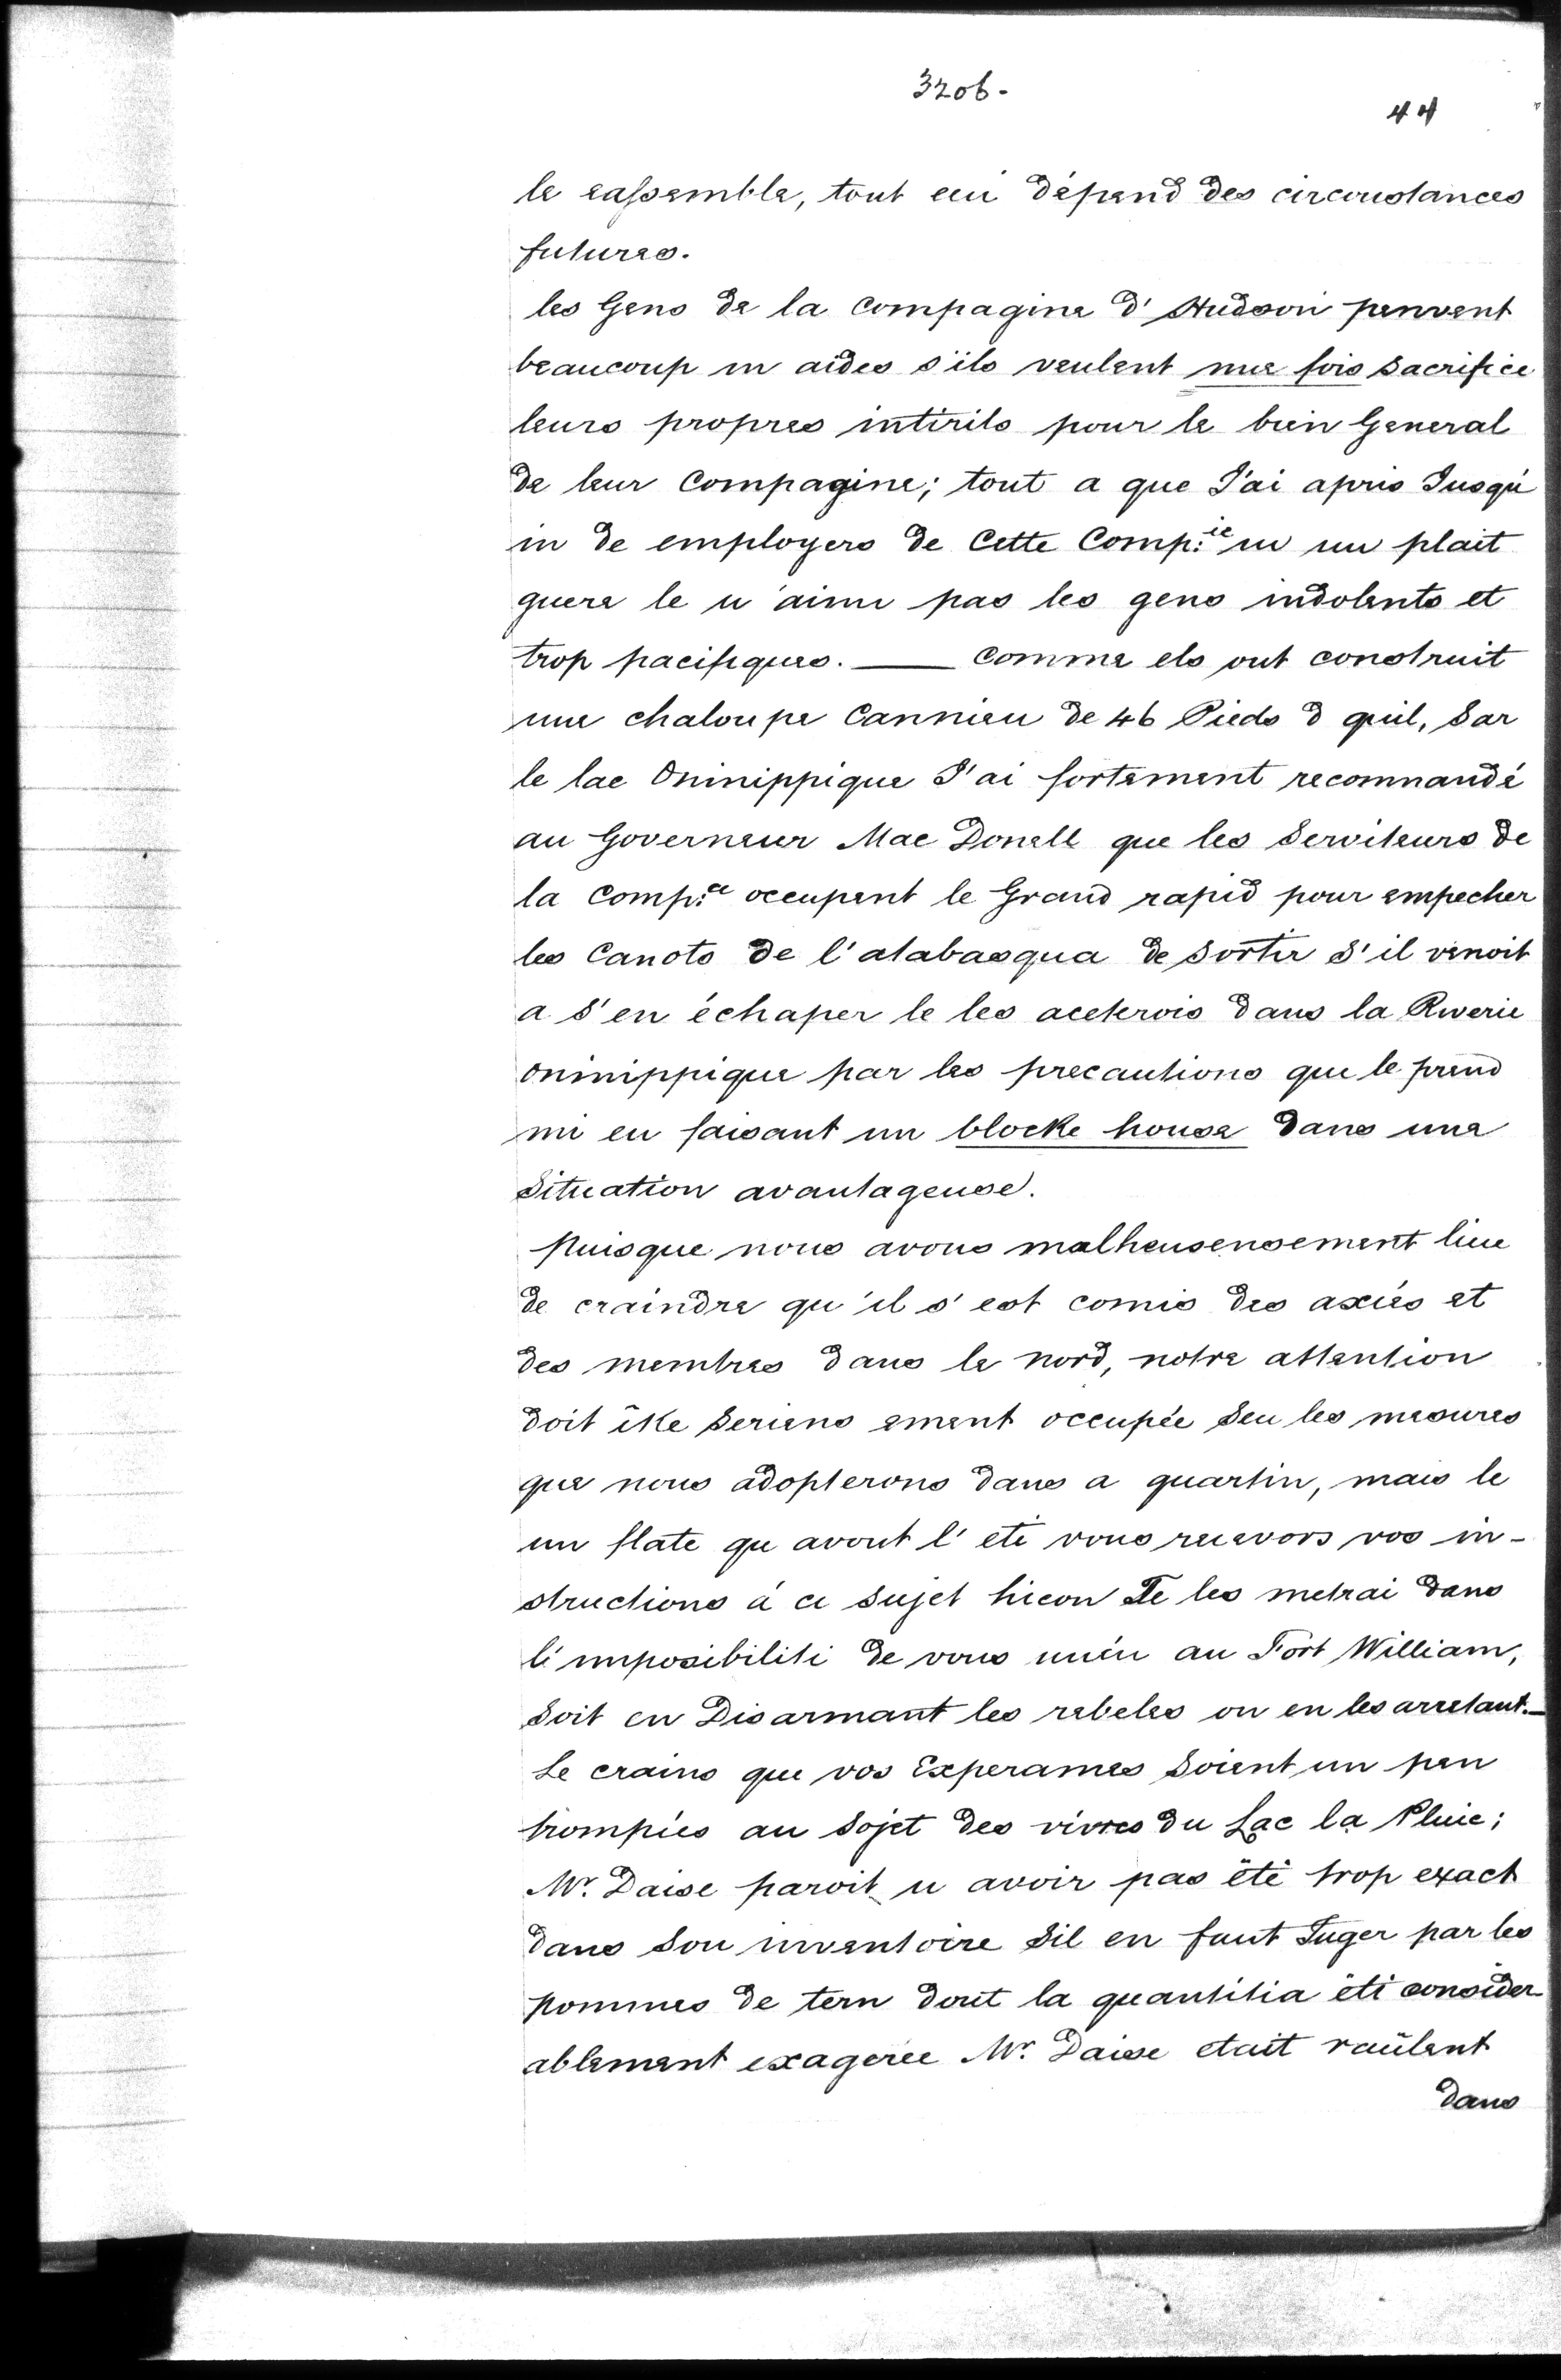 3206-
44
le eassemble, tout eui dépend des circonstances
futures.
les Gens de la Compagine d' Hudson penvent
beaucoup m aides s'ils veulent une fois sacrifice
leurs propres intirils pour le bien General
de leur Compagine; tout a que J'ai apris Jusqú
in de employers de Cette Comp:ie ni un plait
guere le n'aime pas les gens indolents et
trop pacifiques. — Comme els out construit
une chaloupe Cannieu de 46 Pieds d quil, Sar
le lac Oninippique J'ai fortement recommandé
au Governeur Mac Donell que les Serviteurs de
la Comp:ce occupent le Grand rapid pour empecher
les Canots de l'atabasqua de sortir s'il venoit
a s'en échaper le les aceterois dans la Riverie
Oninippique par les precautions que le prend
mi en faisant un blocke house dans une
Situation avantageuse.
Puisque nous avons malheusensement lieu
de craindre qu'il s'est comis des axiés et
des membres dans le nord, notre attention
doit êke Seriens ement occupée Seu les mesures
que nous adopterons dans a quartin, mais le
un flate qu avout l'eté vous recevors vos in-
structions á ce sujet hicon Te les metrai dans
l'imposibiliti de vous nuén au Fort William,
Soit en Disarmant les rebeles ou en les arretant.—
Le crains que vos Experames Soient un pen
trompiés au Sojet des vivres du Lac la Pluie;
Mr. Daise paroit n avoir pas été trop exact
dans Sou inventoire Sil en faut Juger par les
pommes de tern dout la quantitia été consider-
ablement exagerée Mr. Daise etait raûlent
dans